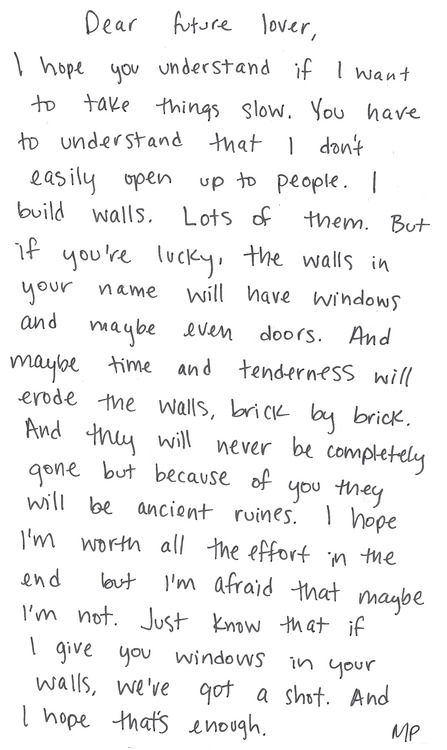 Dear future lover,
I hope you understand if I want
to take things slow. You have
to understand that I don't
easily open up to people. I
build walls. Lots of them. But
if you're lucky, the walls in
your name will have windows
and maybe even doors. And
maybe time and tenderness will
erode the walls, brick by brick.
And they will never be completely
gone but because of you they
will be ancient ruines. I hope
I'm worth all the effort in the
end but I'm afraid that maybe
I'm not. Just know that if
I give you windows in your
walls, we've got a shot. And
I hope that's enough.
MP